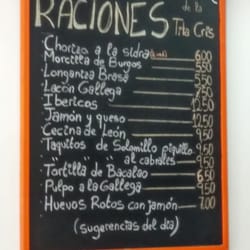 RACIONES de la
Tita Cris
Chorizo a la sidra 6,00
Morcilla de Burgos 5,50
Longaniza Brasa 5,50
Lacón Gallega 7,50
Ibericos 12,50
Jamón y queso 12,50
Cecina de León 9,50
Taquitos de Solomillo piquillo 9,50
" " al cabrales 9,50
Tortilla de Bacalao 6,50
Pulpo a la Gallega 9,50
Huevos Rotos con jamón 7,00
(sugerencias del día)